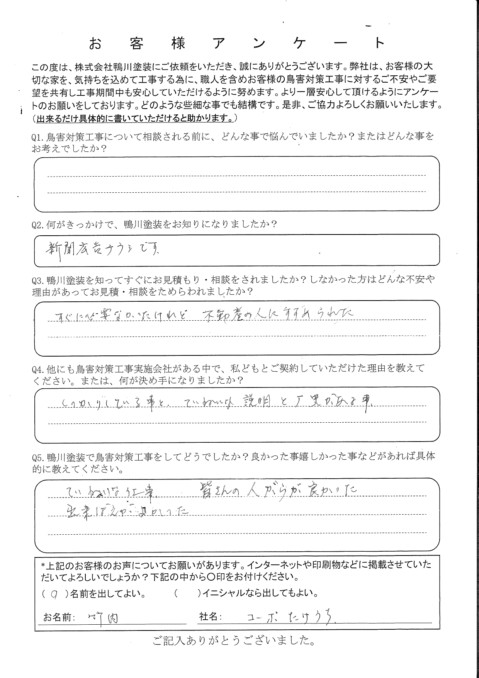 お客様アンケート
この度は、株式会社鴨川塗装にご依頼をいただき、誠にありがとうございます。弊社は、お客様の大
切な家を、気持ちを込めて工事する為に、職人を含めお客様の鳥害対策工事に対するご不安やご要
望を共有し工事期間中も安心していただけるように努めます。より一層安心して頂けるようにアンケー
トのお願いをしております。どのような些細な事でも結構です。是非、ご協力よろしくお願いいたします。
(出来るだけ具体的に書いていただけると助かります。)
Q1.鳥害対策工事について相談される前に、どんな事で悩んでいましたか?またはどんな事を
お考えでしたか?
Q2.何がきっかけで、鴨川塗装をお知りになりましたか?
新聞広告のうらです
Q3.鴨川塗装を知ってすぐにお見積もり・相談をされましたか?しなかった方はどんな不安や
理由があってお見積・相談をためらわれましたか?
すぐに必要なかったけれど 不動産の人にすすめられた
Q4.他にも鳥害対策工事実施会社がある中で、私どもとご契約していただけた理由を教えて
ください。または、何が決め手になりましたか?
しっかりしている事と、ていねいな 説明と 実がある事
Q5.鴨川塗装で鳥害対策工事をしてどうでしたか?良かった事嬉しかった事などがあれば具体
的に教えてください。
ていねいな仕事 皆さんの人がらが良かった
出来ばえが良かった
*上記のお客様のお声についてお願いがあります。インターネットや印刷物などに掲載させていた
だいてよろしいでしょうか?下記の中から〇印をお付けください。
(〇)名前を出してよい。 ( )イニシャルなら出してもよい。
お名前: 竹内 社名: コーポ たけうち
ご記入ありがとうございました。